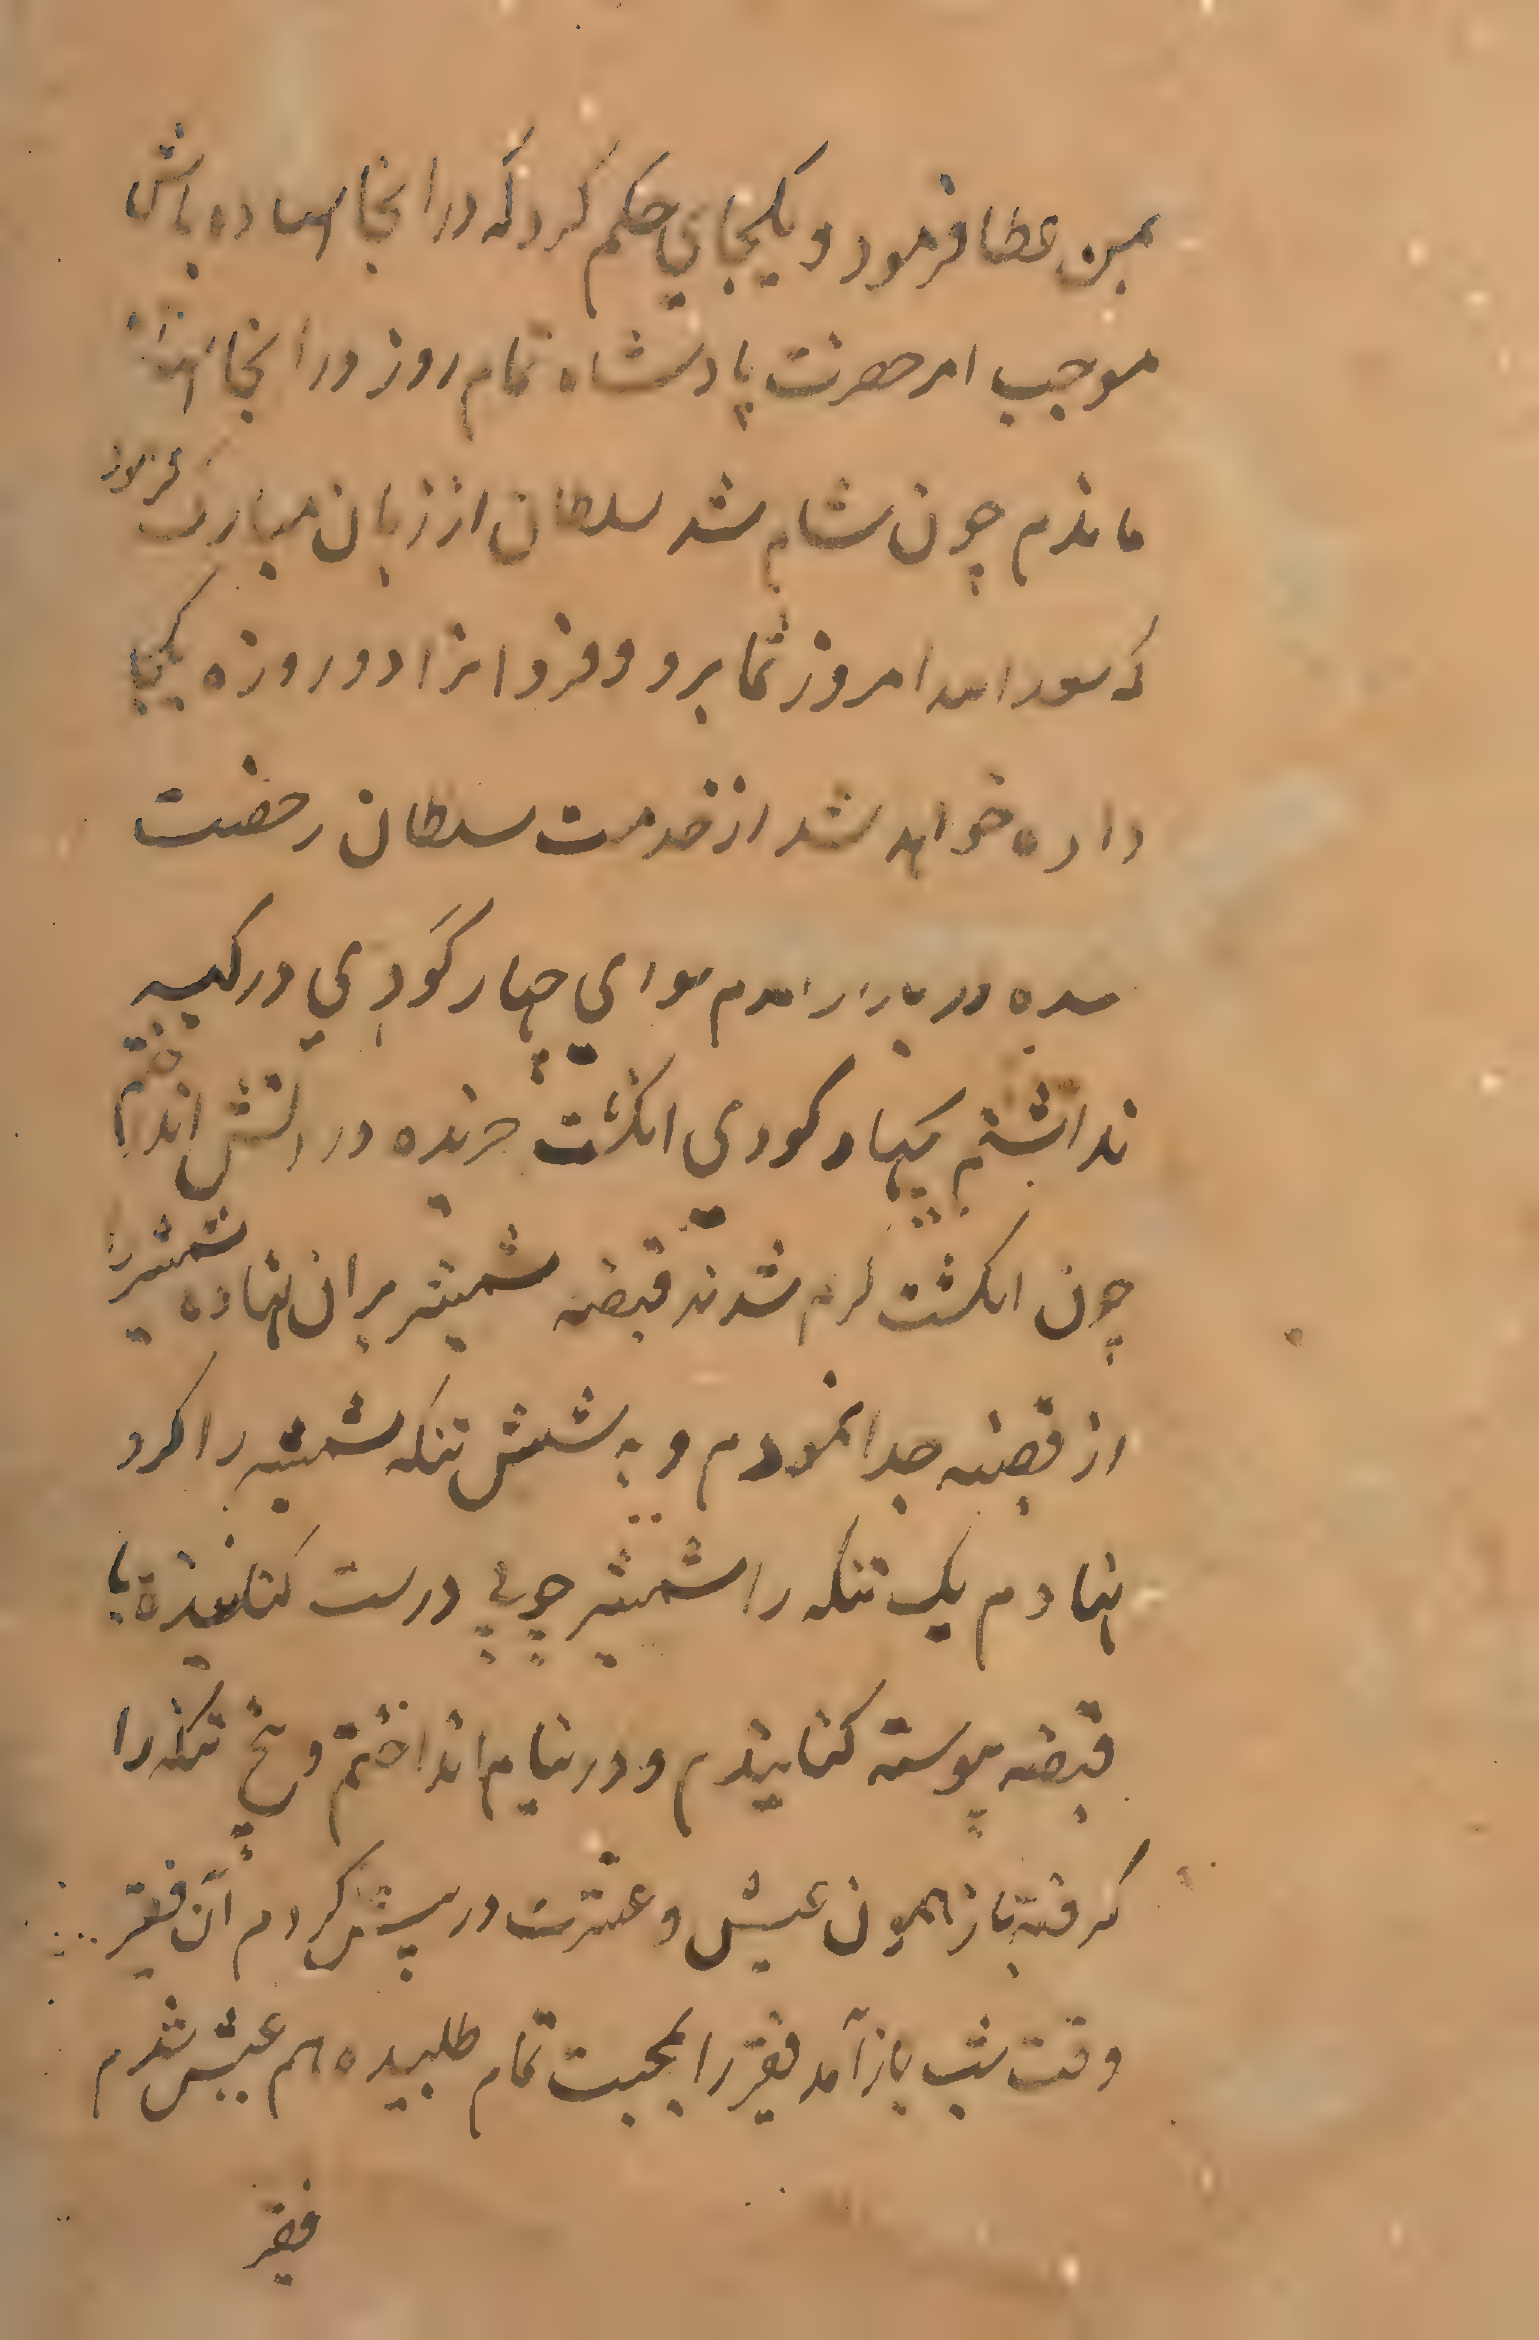 بمن عطا فرمود و یکجای حکم کرد که در انجا استاده باش
موجب امر حضرت پادشاه تمام روز در انجا استاده
ماندم چون شام شد سلطان از زبان مبارک فرمود
که امروز شما برو و فردا ترا دو روزه یکجا
داده خواهد شد از خدمت سلطان رخصت
شده در بازار امدم سوای چهار کوڈی در کیسه
نداشتم بچهار کودی انکشت خریده در اتش انداختم
چون انکشت کرم شدند قبضه شمشیر بران نهاده شمشیر را
از قبضه جدا نمودم و به شش تنکه شمشیر را کرو
نهادم یک تنکه را شمشیر چوبی درست کنانیده با
قبضه پیوسته کنانیدم و در نیام انداختم و پنج تنکه را
کرفته باز همون عیش و عشرت در پیش کردم آن فقیر
وقت شب باز آمد فقیر را بمحبت تمام طلبیده هم عیش شدم
فقیر